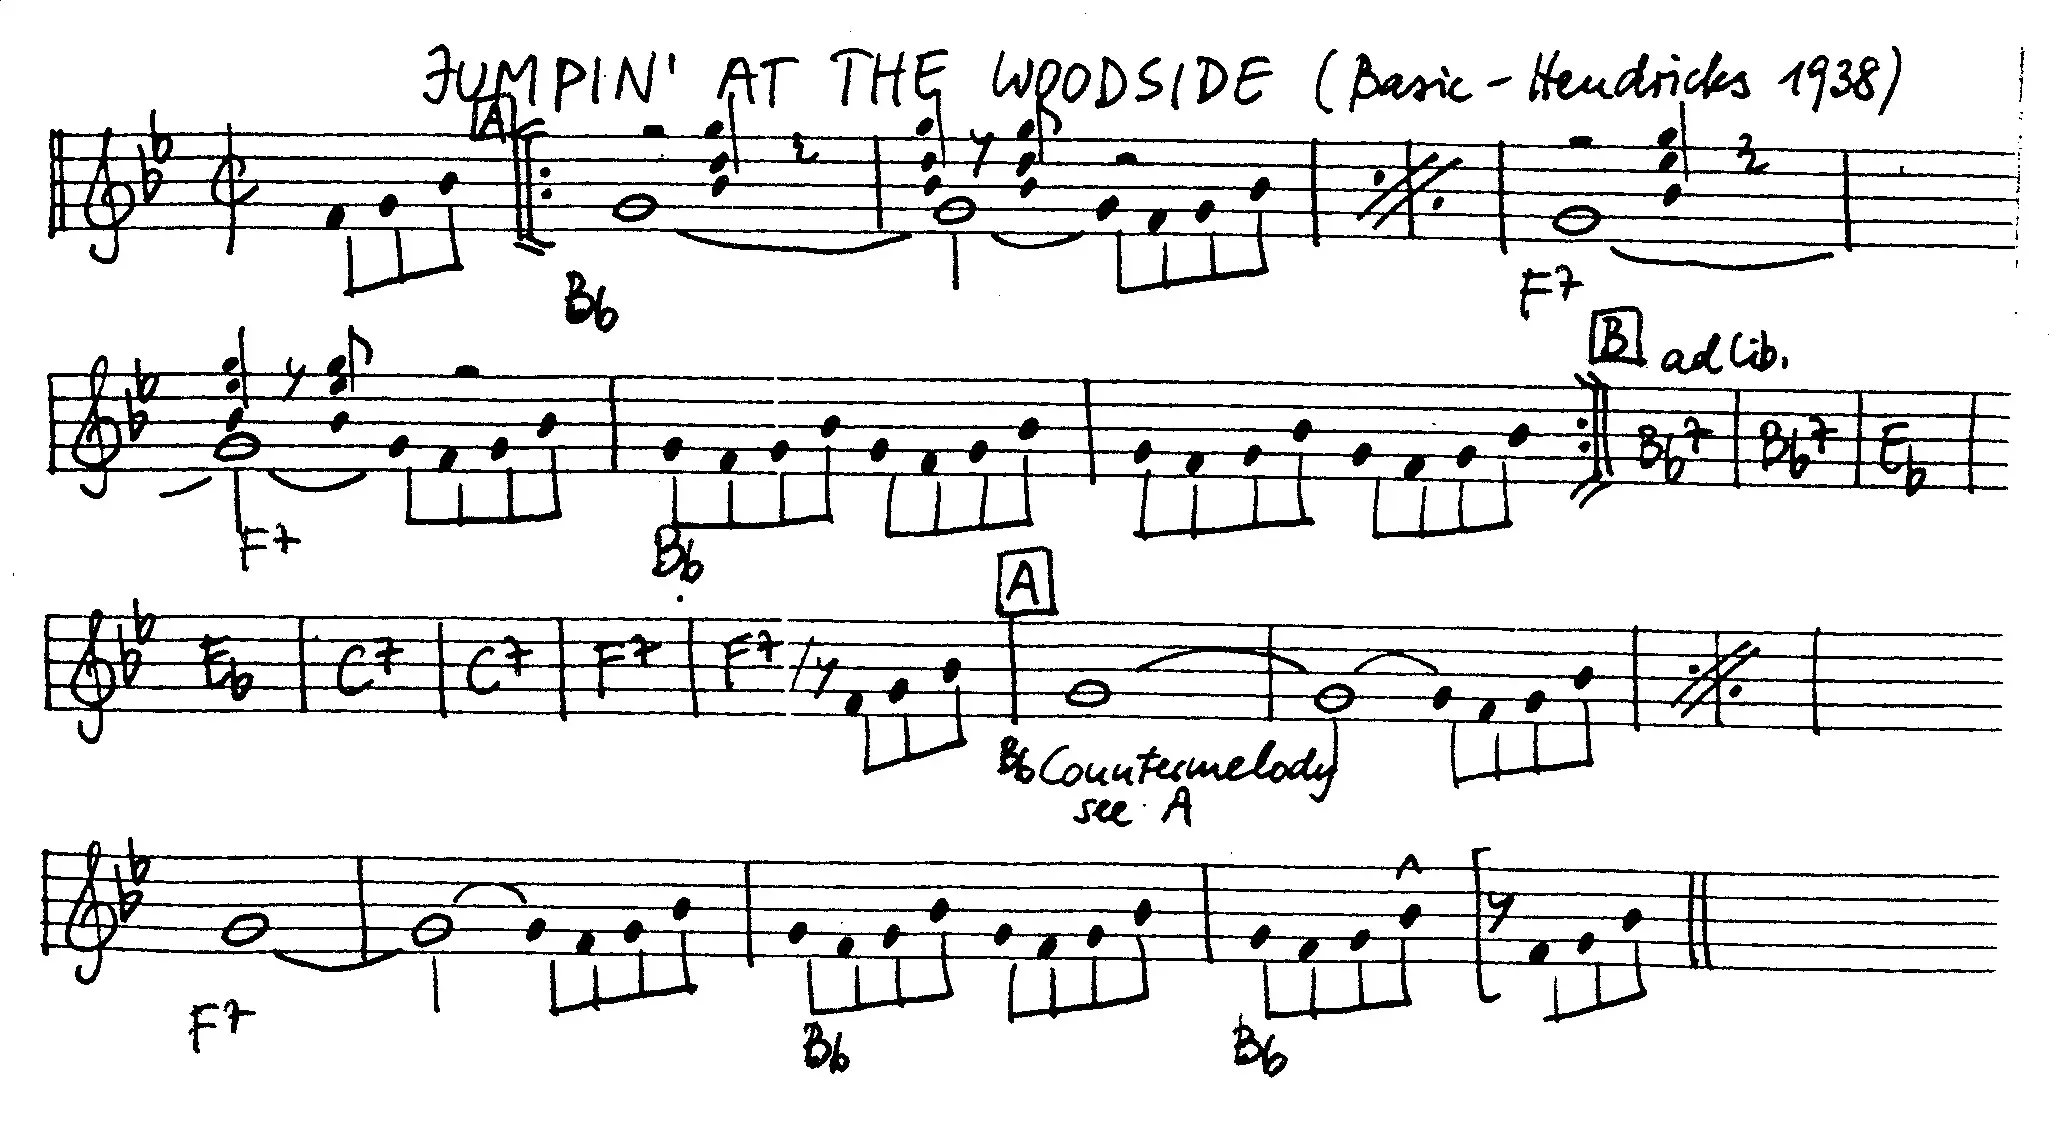 JUMPIN' AT THE WOODSIDE (Basie-Hendricks 1938)
A
Bb F7
B ad lib.
Bb7 Bb7 Eb
F7 Bb
A
Eb C7 C7 F7 F7
Bb Countermelody
see A
F7 Bb Bb